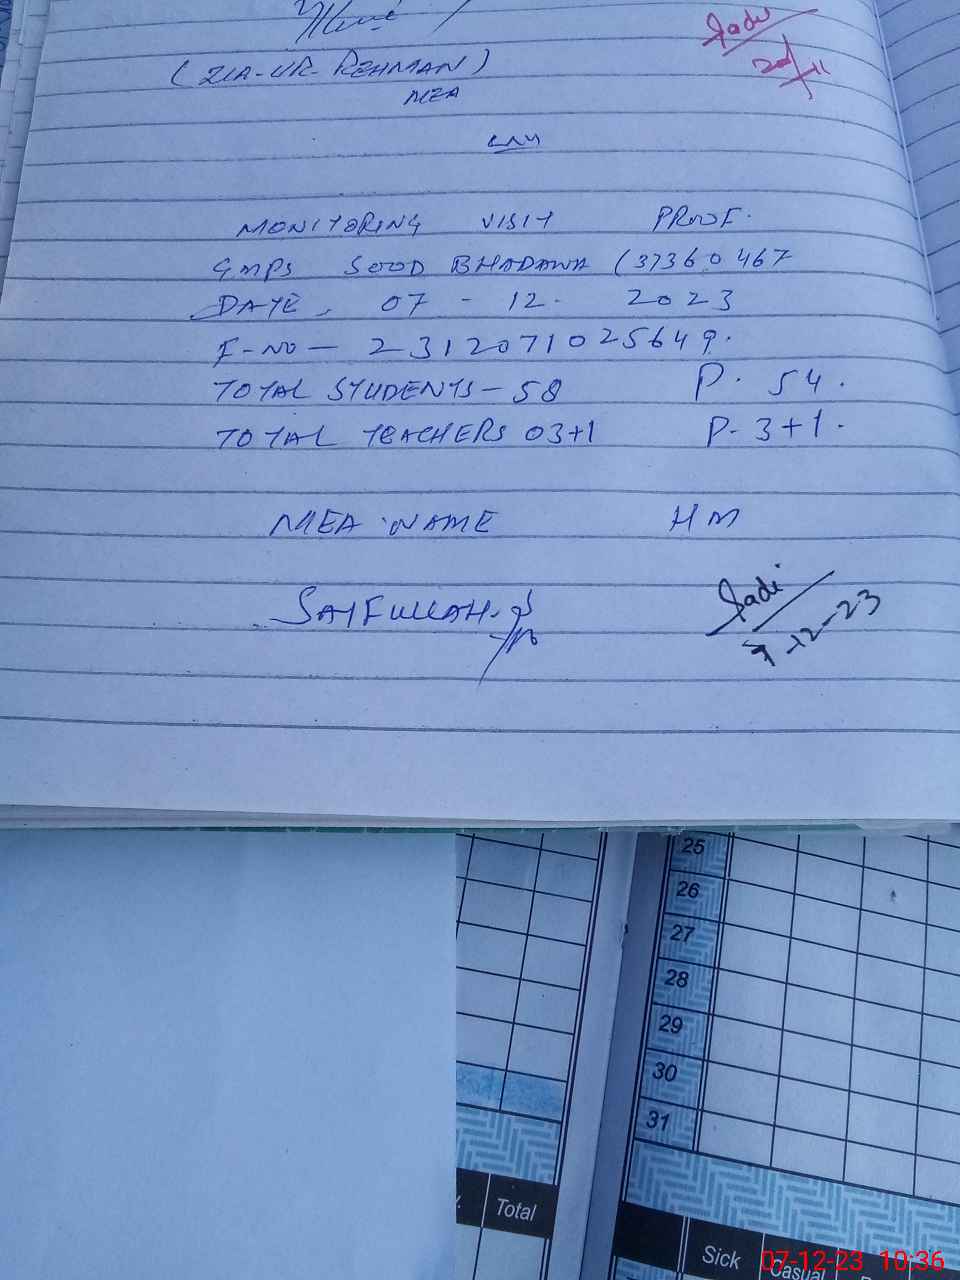 (ZIA-UR-REHMAN)
MEA
MONITORING VISIT PROOF.
GMPS SOOD BHADANA (37360467
DATE. 07 - 12. 2023
F-NO - 2312071025649.
TOTAL STUDENTS - 58 P. 54.
TOTAL TEACHERS 03+1 P. 3+1.
MEA NAME HM
SAIFULLAH.
Sadi
7-12-23
25
26
27
28
29
30
31
Total
Sick Casual
07-12-23 10:36